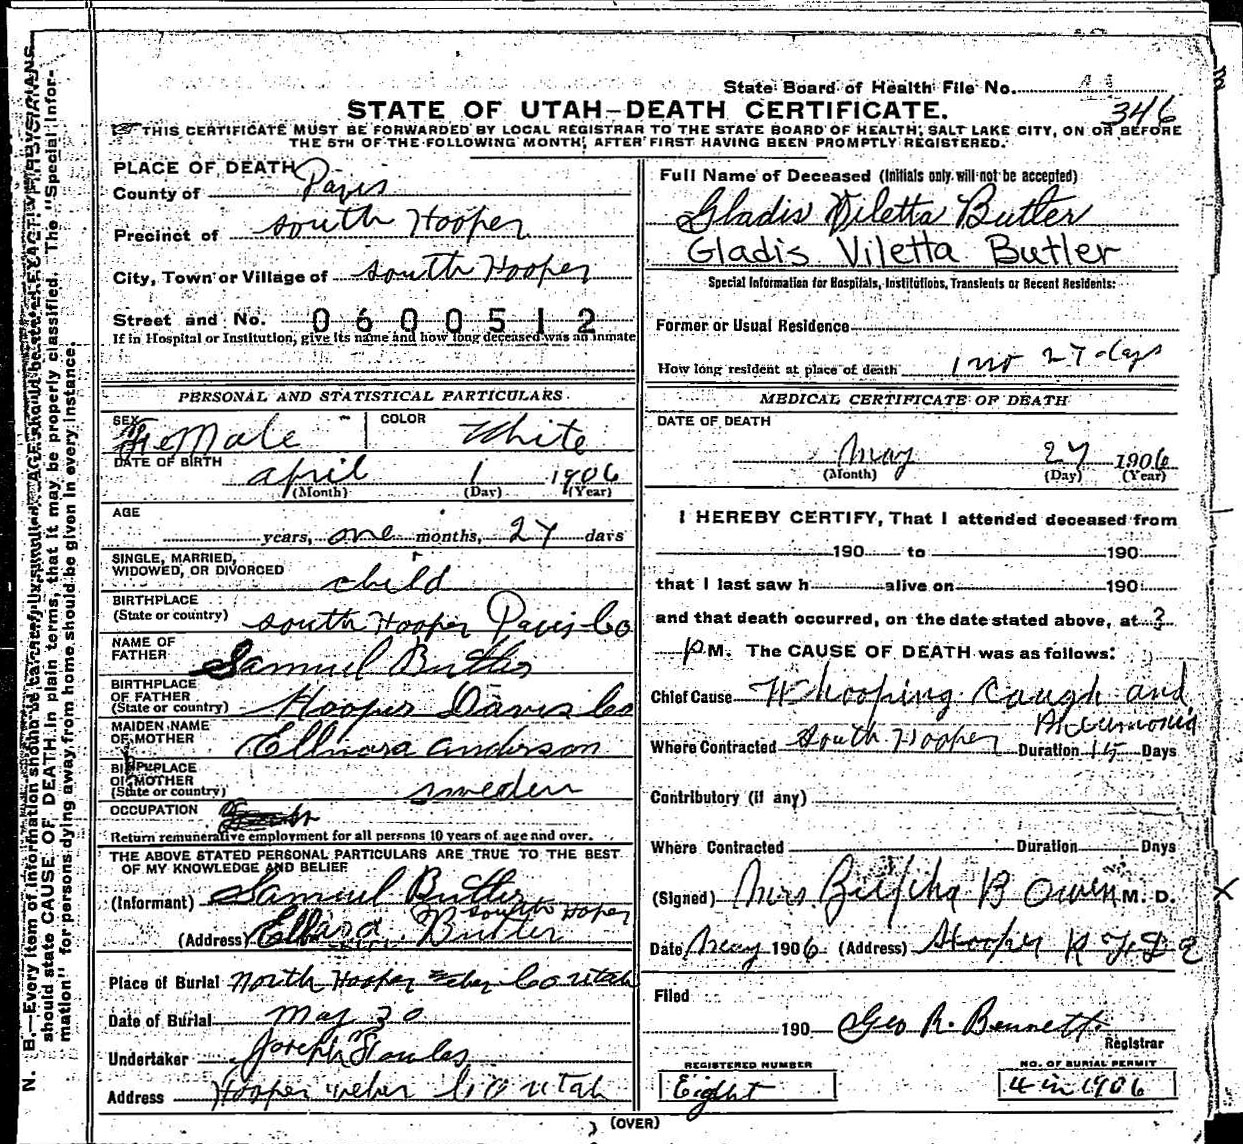 State Board of Health File No.
346
STATE OF UTAH—DEATH CERTIFICATE.
THIS CERTIFICATE MUST BE FORWARDED BY LOCAL REGISTRAR TO THE STATE BOARD OF HEALTH, SALT LAKE CITY, ON OR BEFORE
THE 5TH OF THE FOLLOWING MONTH, AFTER FIRST HAVING BEEN PROMPTLY REGISTERED.
PLACE OF DEATH
County of Davis
Precinct of South Hooper
City, Town or Village of South Hooper
Street and No. 0600512
If in Hospital or Institution, give its name and how long deceased was an inmate
PERSONAL AND STATISTICAL PARTICULARS
SEX FeMale COLOR White
DATE OF BIRTH april 1 1906
(Month) (Day) (Year)
AGE
years, one months, 27 days
SINGLE, MARRIED,
WIDOWED, OR DIVORCED child
BIRTHPLACE
(State or country) South Hooper Davis Co
NAME OF
FATHER Samuel Butler
BIRTHPLACE
OF FATHER
(State or country) Hooper Davis Co
MAIDEN NAME
OF MOTHER Ellnora anderson
BIRTHPLACE
OF MOTHER
(State or country) sweden
OCCUPATION
Return remunerative employment for all persons 10 years of age and over.
THE ABOVE STATED PERSONAL PARTICULARS ARE TRUE TO THE BEST
OF MY KNOWLEDGE AND BELIEF
(Informant) Samuel Butler
South Hoper
(Address) Butler
Place of Burial North Hooper Weber Co Utah
Date of Burial May 30
Undertaker Joseph
Address Hooper weber Co Utah
Full Name of Deceased (Initials only will not be accepted)
Gladis Viletta Butler
Gladis Viletta Butler
Special Information for Hospitals, Institutions, Transients or Recent Residents:
Former or Usual Residence
How long resident at place of death 1 mo 27 days
MEDICAL CERTIFICATE OF DEATH
DATE OF DEATH
May 27 1906
(Month) (Day) (Year)
I HEREBY CERTIFY, That I attended deceased from
190 to 190
that I last saw h alive on 190
and that death occurred, on the date stated above, at 3
P M. The CAUSE OF DEATH was as follows:
Chief Cause Whooping Caugh and
Pneumonia
Where Contracted South Hooper Duration 15 Days
Contributory (if any)
Where Contracted Duration Days
(Signed) Mrs B Owen M. D.
Date May 1906 (Address) Hooper R F D 2
Filed
190 Geo R. Bennett
Registrar
REGISTERED NUMBER
Eight
NO. OF BURIAL PERMIT
4 in 1906
(OVER)
N. B.—Every item of information should be carefully supplied. AGE should be stated EXACTLY. PHYSICIANS
should state CAUSE OF DEATH in plain terms, that it may be properly classified. The "Special Infor-
mation" for persons dying away from home should be given in every instance.